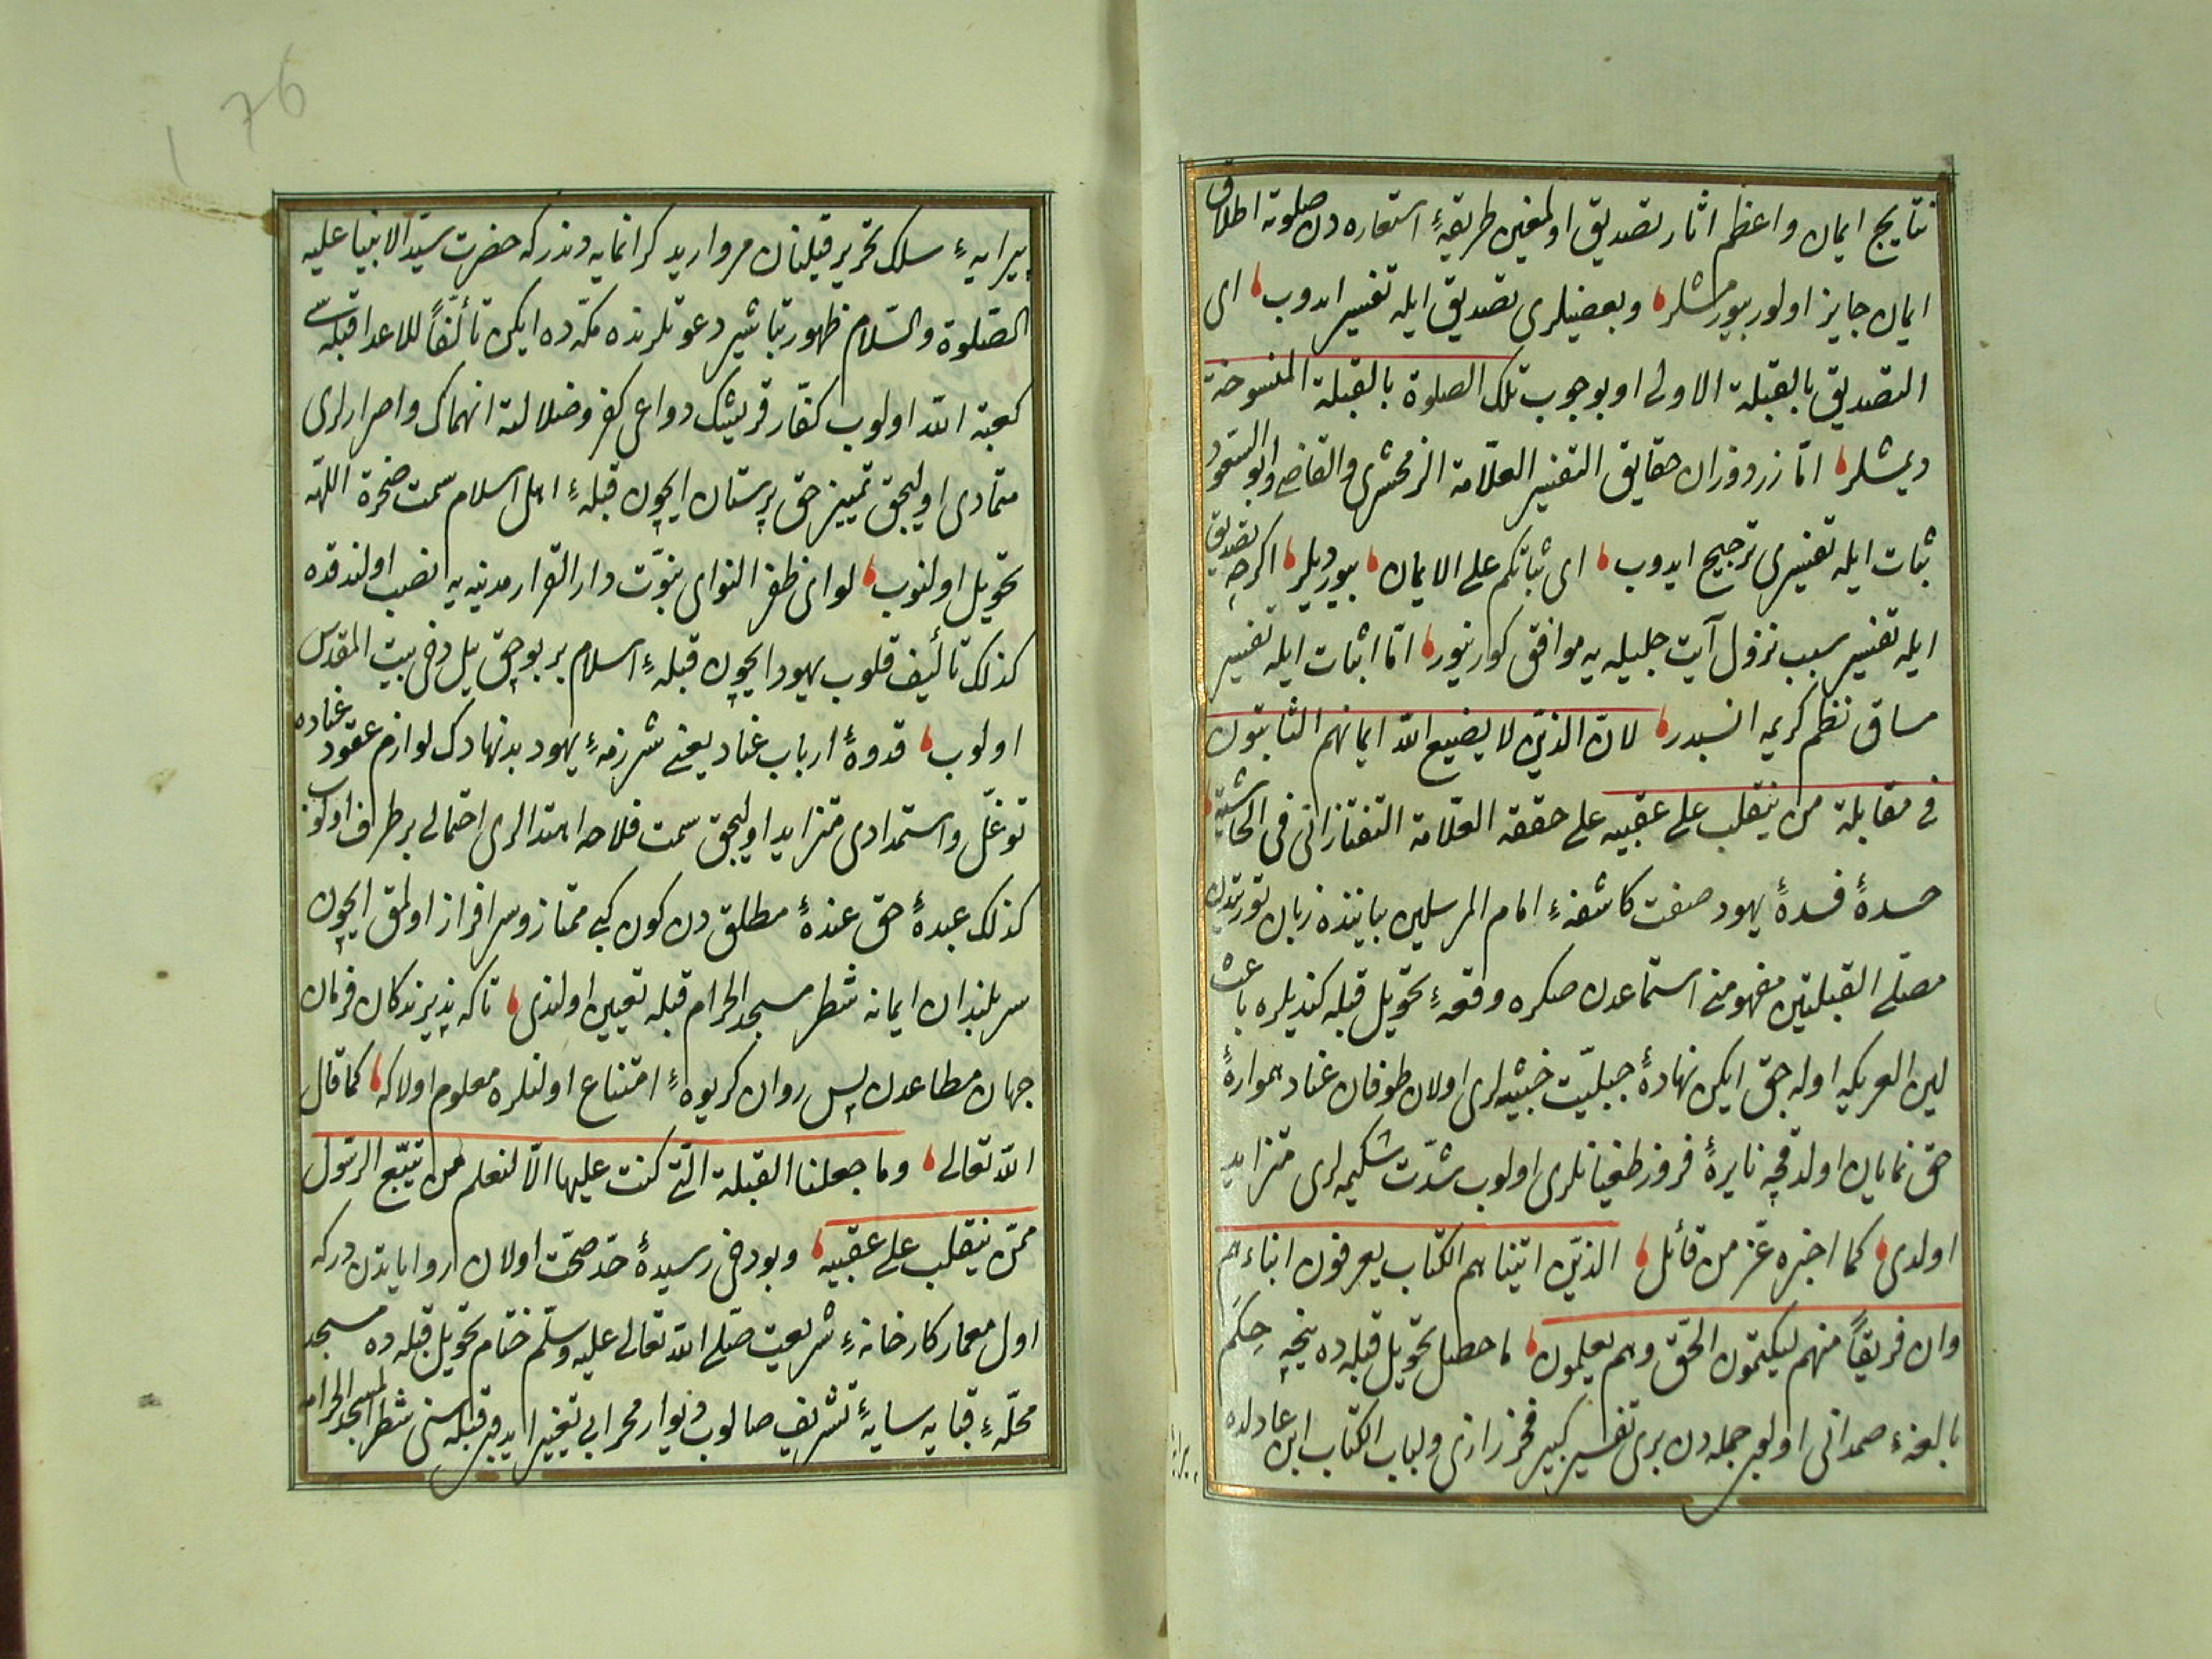 نتايج ايمان واعظم اثار تصديق اولمغين طريقهٔ استعاره دن صلوته اطلاق
ايمان جايز اولور بيورمشلر وبعضيلرى تصديق ايله تفسير ايدوب اى
التصديق بالقبلة الاولى او بوجوب تلك الصلوة بالقبلة المنسوخة
ديمشلر امّا زردوزان حقايق التفسير العلّامة الزمخشرى والقاضى وابو السعود
ثبات ايله تفسيرى ترجيح ايدوب اى ثباتكم على الايمان بيورديلر اكرچه تصديق
ايله تفسير سبب نزول آيت جليله يه موافق كورينور امّا اثبات ايله تفسير
مساق نظم كريمه انسبدر لان الذين لا يضيع الله ايمانهم الثابتون
فى مقابلة من ينقلب على عقبيه على حققه العلّامة التفتازانى فى الحاشية
حسدهٔ فسدهٔ يهود صفت كاشفهٔ امام المرسلين بابنده زبان توريتدن
مصلّى القبلتين مفهومنى استماعدن صكره وقعهٔ تحويل قبله كنديلره باعث
لين العريكه اوله جق ايكن نهادهٔ جبليّت خبيثه لرى اولان طوفان عناد همواره
حق نمايان اولدقچه نايرهٔ فروز طغيانلرى اولوب شدّت شكيمه لرى متزايد
اولدى كما اخبره عزّ من قائل الذين اتيناهم الكتاب يعرفون ابناءهم
وان فريقاً منهم ليكتمون الحقّ وهم يعلمون ما حصل تحويل قبله ده نيچه حِكَم
بالغهٔ صمدانى اولوب جمله دن برى تفسير كبير فخر رازى ولباب الكتاب ابن عادلده
پيرايهٔ سلك تحرير قيلنان مرواريد كرانمايه دندركه حضرت سيّد الانبيا عليه
الصّلوة والسّلام ظهور تباشير دعوتلرنده مكّه ده ايكن تألّفاً للاعدا قبله سى
كعبة الله اولوب كفّار قريشك دواعى كفر وضلالته انهماك واصرارلرى
متمادى اوليجق تمييز حق پرستان ايچون قبلهٔ اهل اسلام سمت صخرة اللّهه
تحويل اولنوب لواى ظفر النواى نبوّت دار القرار مدينه يه نصب اولندقده
كذلك تأليف قلوب يهود ايچون قبلهٔ اسلام بر بوچق ييل دخى بيت المقدس
اولوب قدوهٔ ارباب عناد يعنى شرزمهٔ يهود بدنهادك لوازم عقود عناده
توغّل واستمدادى متزايد اوليجق سمت فلاحه اهتدالرى احتمالى بر طرف اولوب
كذلك عبدهٔ حق عندهٔ مطلق دن كون كبى ممتاز وسرافراز اولمق ايچون
سربلندان ايمانه شطر مسجد الحرام قبله تعيين اولندى تاكه پذيرندكان فرمان
جهان مطاعدن پس روان كريوهٔ امتناع اولنلره معلوم اولاكه كما قال
الله تعالى وما جعلنا القبلة التى كنت عليها الّا لنعلم من يتبّع الرسول
ممّن ينقلب على عقبيه وبودخى رسيدهٔ حدّ صحّت اولان رواياتدن دركه
اول معمار كارخانهٔ شريعت صلّى الله تعالى عليه وسلّم ختام تحويل قبله ده مسجد
محلّهٔ قبايه سايهٔ تشريف صالوب ديوار محرابى تغيير ايدوب قبله سنى شطر المسجد الحرامه
76